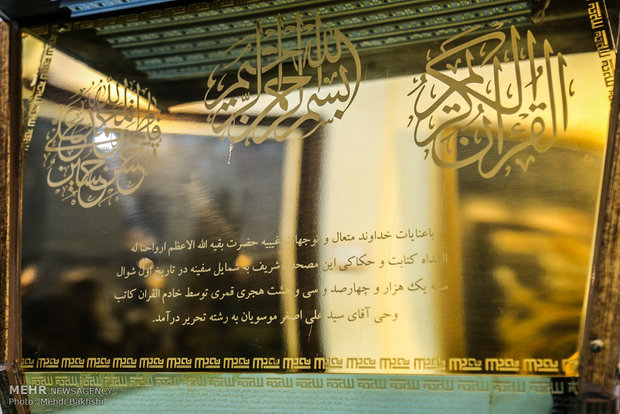 القرآن الكريم
بسم الله الرحمن الرحيم
باعنایات خداوند متعال و توجهات غیبیه حضرت بقیه الله الاعظم ارواحنا له
الفداه کتابت و حکاکی این مصحف شریف به شمایل سفینه در تاریخ اول شوال
سنه یک هزار و چهارصد و سی و هشت هجری قمری توسط خادم القران کاتب
وحی آقای سید علی اصغر موسویان به رشته تحریر درآمد.
MEHR NEWSAGENCY
Photo: Mehdi Bakhshi